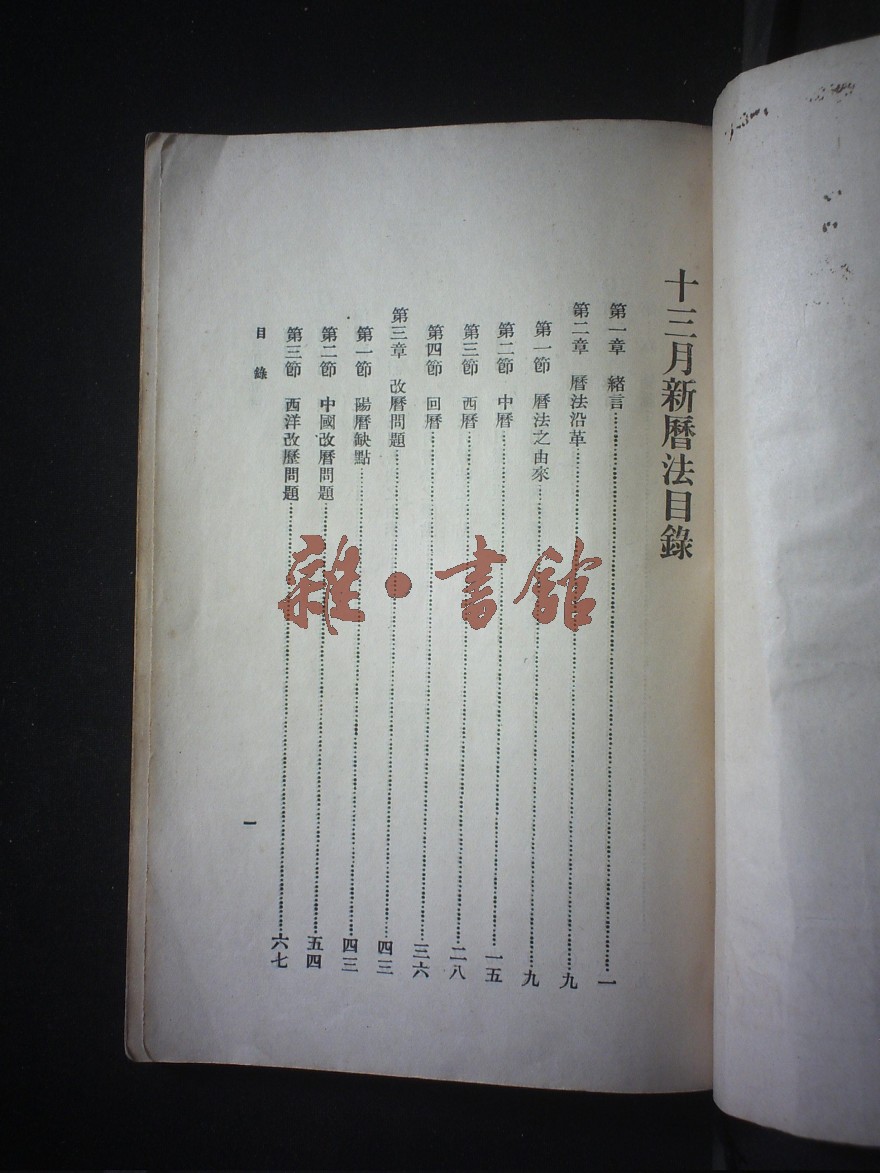 十三月新曆法目錄
第一章 緒言……一
第二章 曆法沿革……九
第一節 曆法之由來……九
第二節 中曆……一五
第三節 西曆……二八
第四節 回曆……三六
第三章 改曆問題……四三
第一節 陽曆缺點……四三
第二節 中國改曆問題……五四
第三節 西洋改歷問題……六七
目錄
一
雜·書館